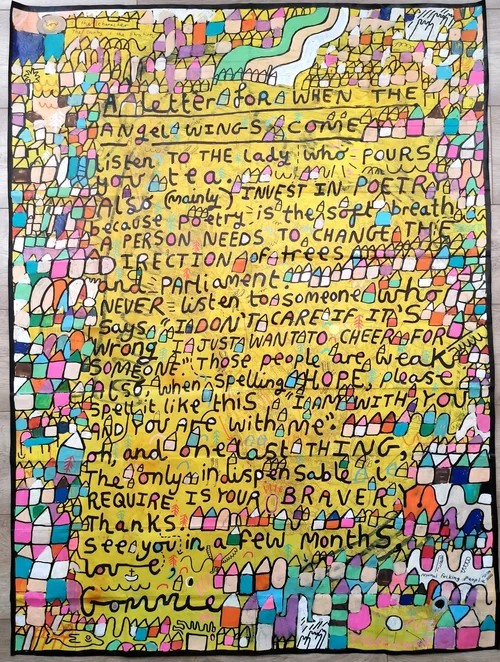 A letter for WHEN THE
Angel WINGS COME
Listen TO THE Lady who POURS
you tea
Also (mainly) INVEST IN POETRY
because poetry is the soft breath
A PERSON NEEDS TO CHANGE THE
DIRECTION OF trees
and Parliament.
NEVER listen to someone who
says "I DON'T CARE IF IT'S
wrong I JUST WANT TO CHEER FOR
SOMEONE" Those people are weak
Also when spelling HOPE please
spell it like this "I AM WITH YOU
AND YOU ARE with me".
oh and one last THING,
The only indispensable I
REQUIRE IS YOUR BRAVERY
Thanks
see you in a few months
love
bonnie